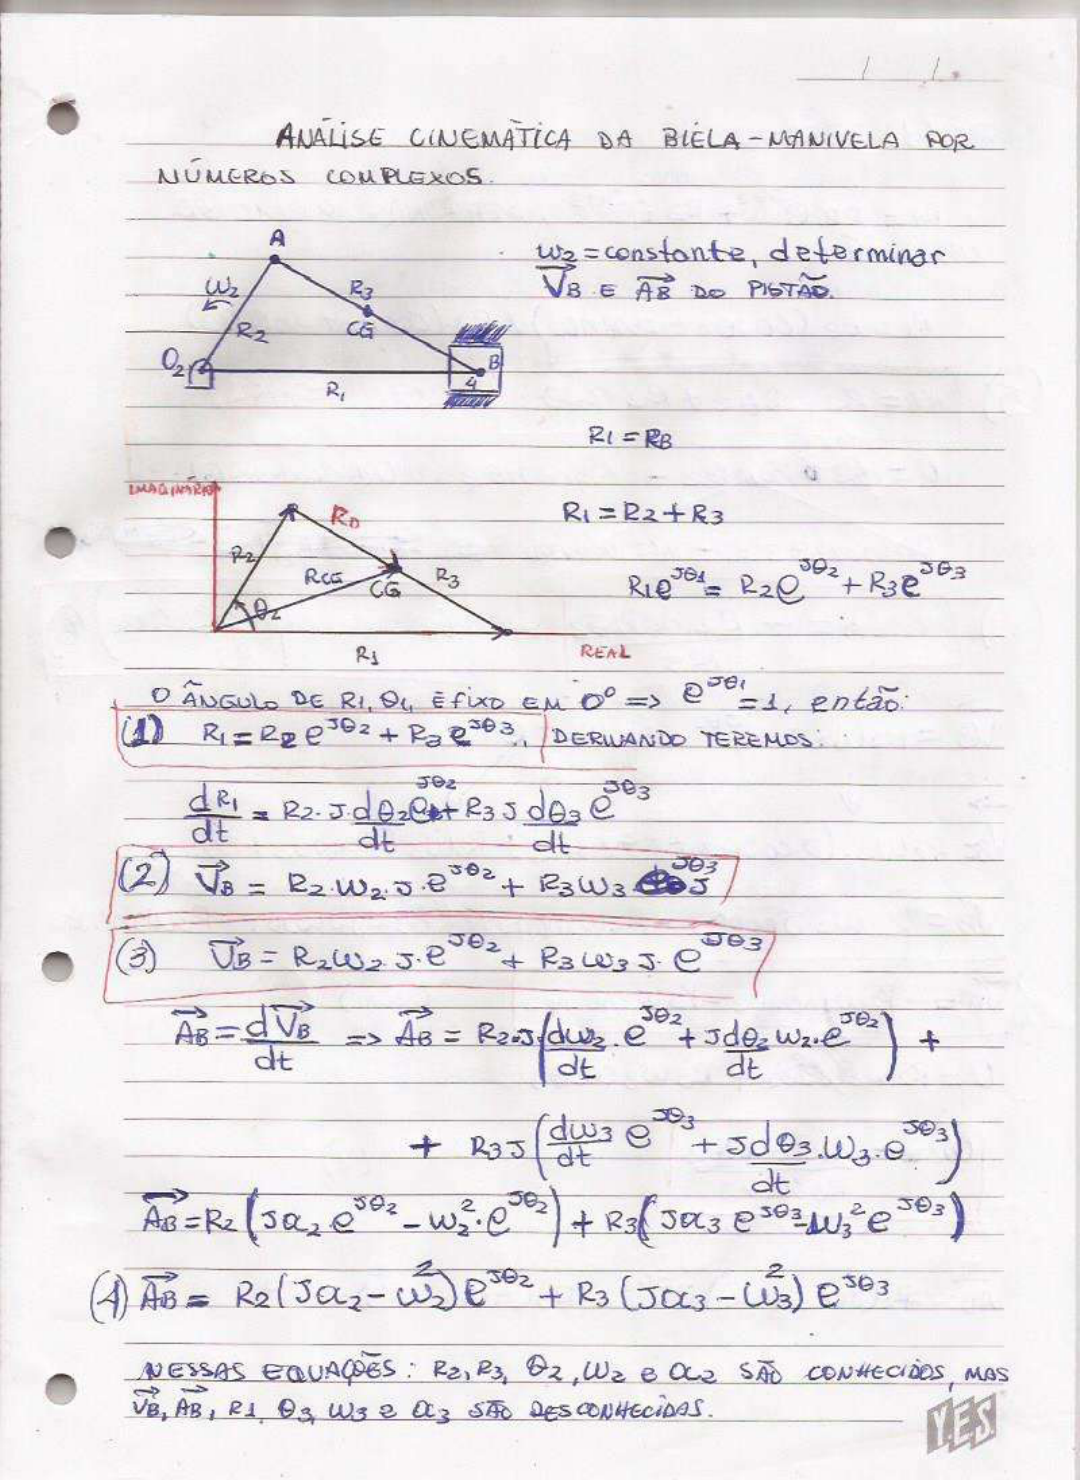 ANÁLISE CINEMÁTICA DA BIELA-MANIVELA POR
NÚMEROS COMPLEXOS.
A
ω2
R3
CG
R2
O2
B
4
R1
ω2 = constante, determinar
VB E AB DO PISTÃO.
R1 = RB
IMAGINÁRIO
RD
R2
RCG
CG
R3
θ2
R1
REAL
R1 = R2 + R3
R1e^jθ1 = R2e^jθ2 + R3e^jθ3
O ÂNGULO DE R1, θ1, É FIXO EM 0° => e^jθ1 = 1, então:
(1) R1 = R2 e^jθ2 + R3 e^jθ3, DERIVANDO TEREMOS:
dR1/dt = R2. J. dθ2/dt e^jθ2 + R3 J dθ3/dt e^jθ3
(2) VB = R2. ω2. J. e^jθ2 + R3 ω3 J^jθ3
(3) VB = R2 ω2. J. e^jθ2 + R3 ω3 J. e^jθ3
AB = dVB/dt => AB = R2.J(dω2/dt . e^jθ2 + J dθ2/dt ω2. e^jθ2) +
+ R3 J (dω3/dt e^jθ3 + J dθ3/dt . ω3. e^jθ3)
AB = R2 (Jα2 e^jθ2 - ω2². e^jθ2) + R3 (Jα3 e^jθ3 - ω3² e^jθ3)
(4) AB = R2 (Jα2 - ω2²) e^jθ2 + R3 (Jα3 - ω3²) e^jθ3
NESSAS EQUAÇÕES: R2, R3, θ2, ω2 e α2 SÃO CONHECIDOS, MAS
VB, AB, R1, θ3, ω3 e α3 SÃO DESCONHECIDAS.
Y.E.S.